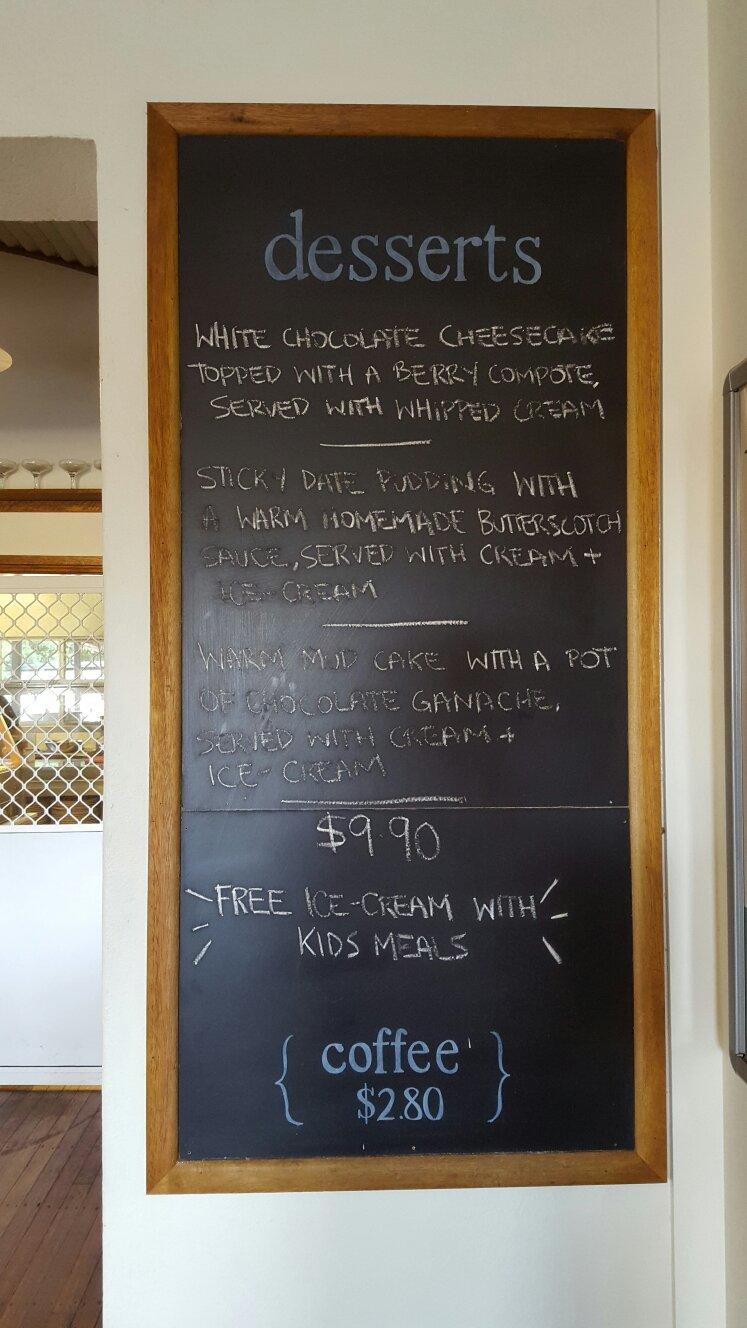 desserts
WHITE CHOCOLATE CHEESECAKE
TOPPED WITH A BERRY COMPOTE,
SERVED WITH WHIPPED CREAM
STICKY DATE PUDDING WITH
A WARM HOMEMADE BUTTERSCOTCH
SAUCE, SERVED WITH CREAM +
ICE-CREAM
WARM MUD CAKE WITH A POT
OF CHOCOLATE GANACHE,
SERVED WITH CREAM +
ICE-CREAM
$9.90
FREE ICE-CREAM WITH
KIDS MEALS
{ coffee
$2.80 }